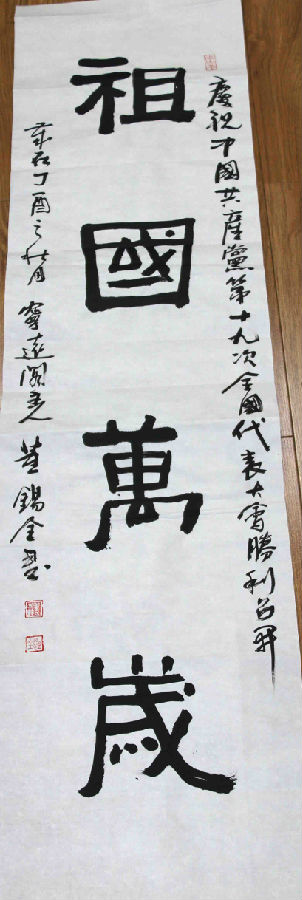 慶祝中國共產黨第十九次全國代表大會勝利召開
祖國萬歲
歲在丁酉之秋月 寧遠閣主 董錫全書